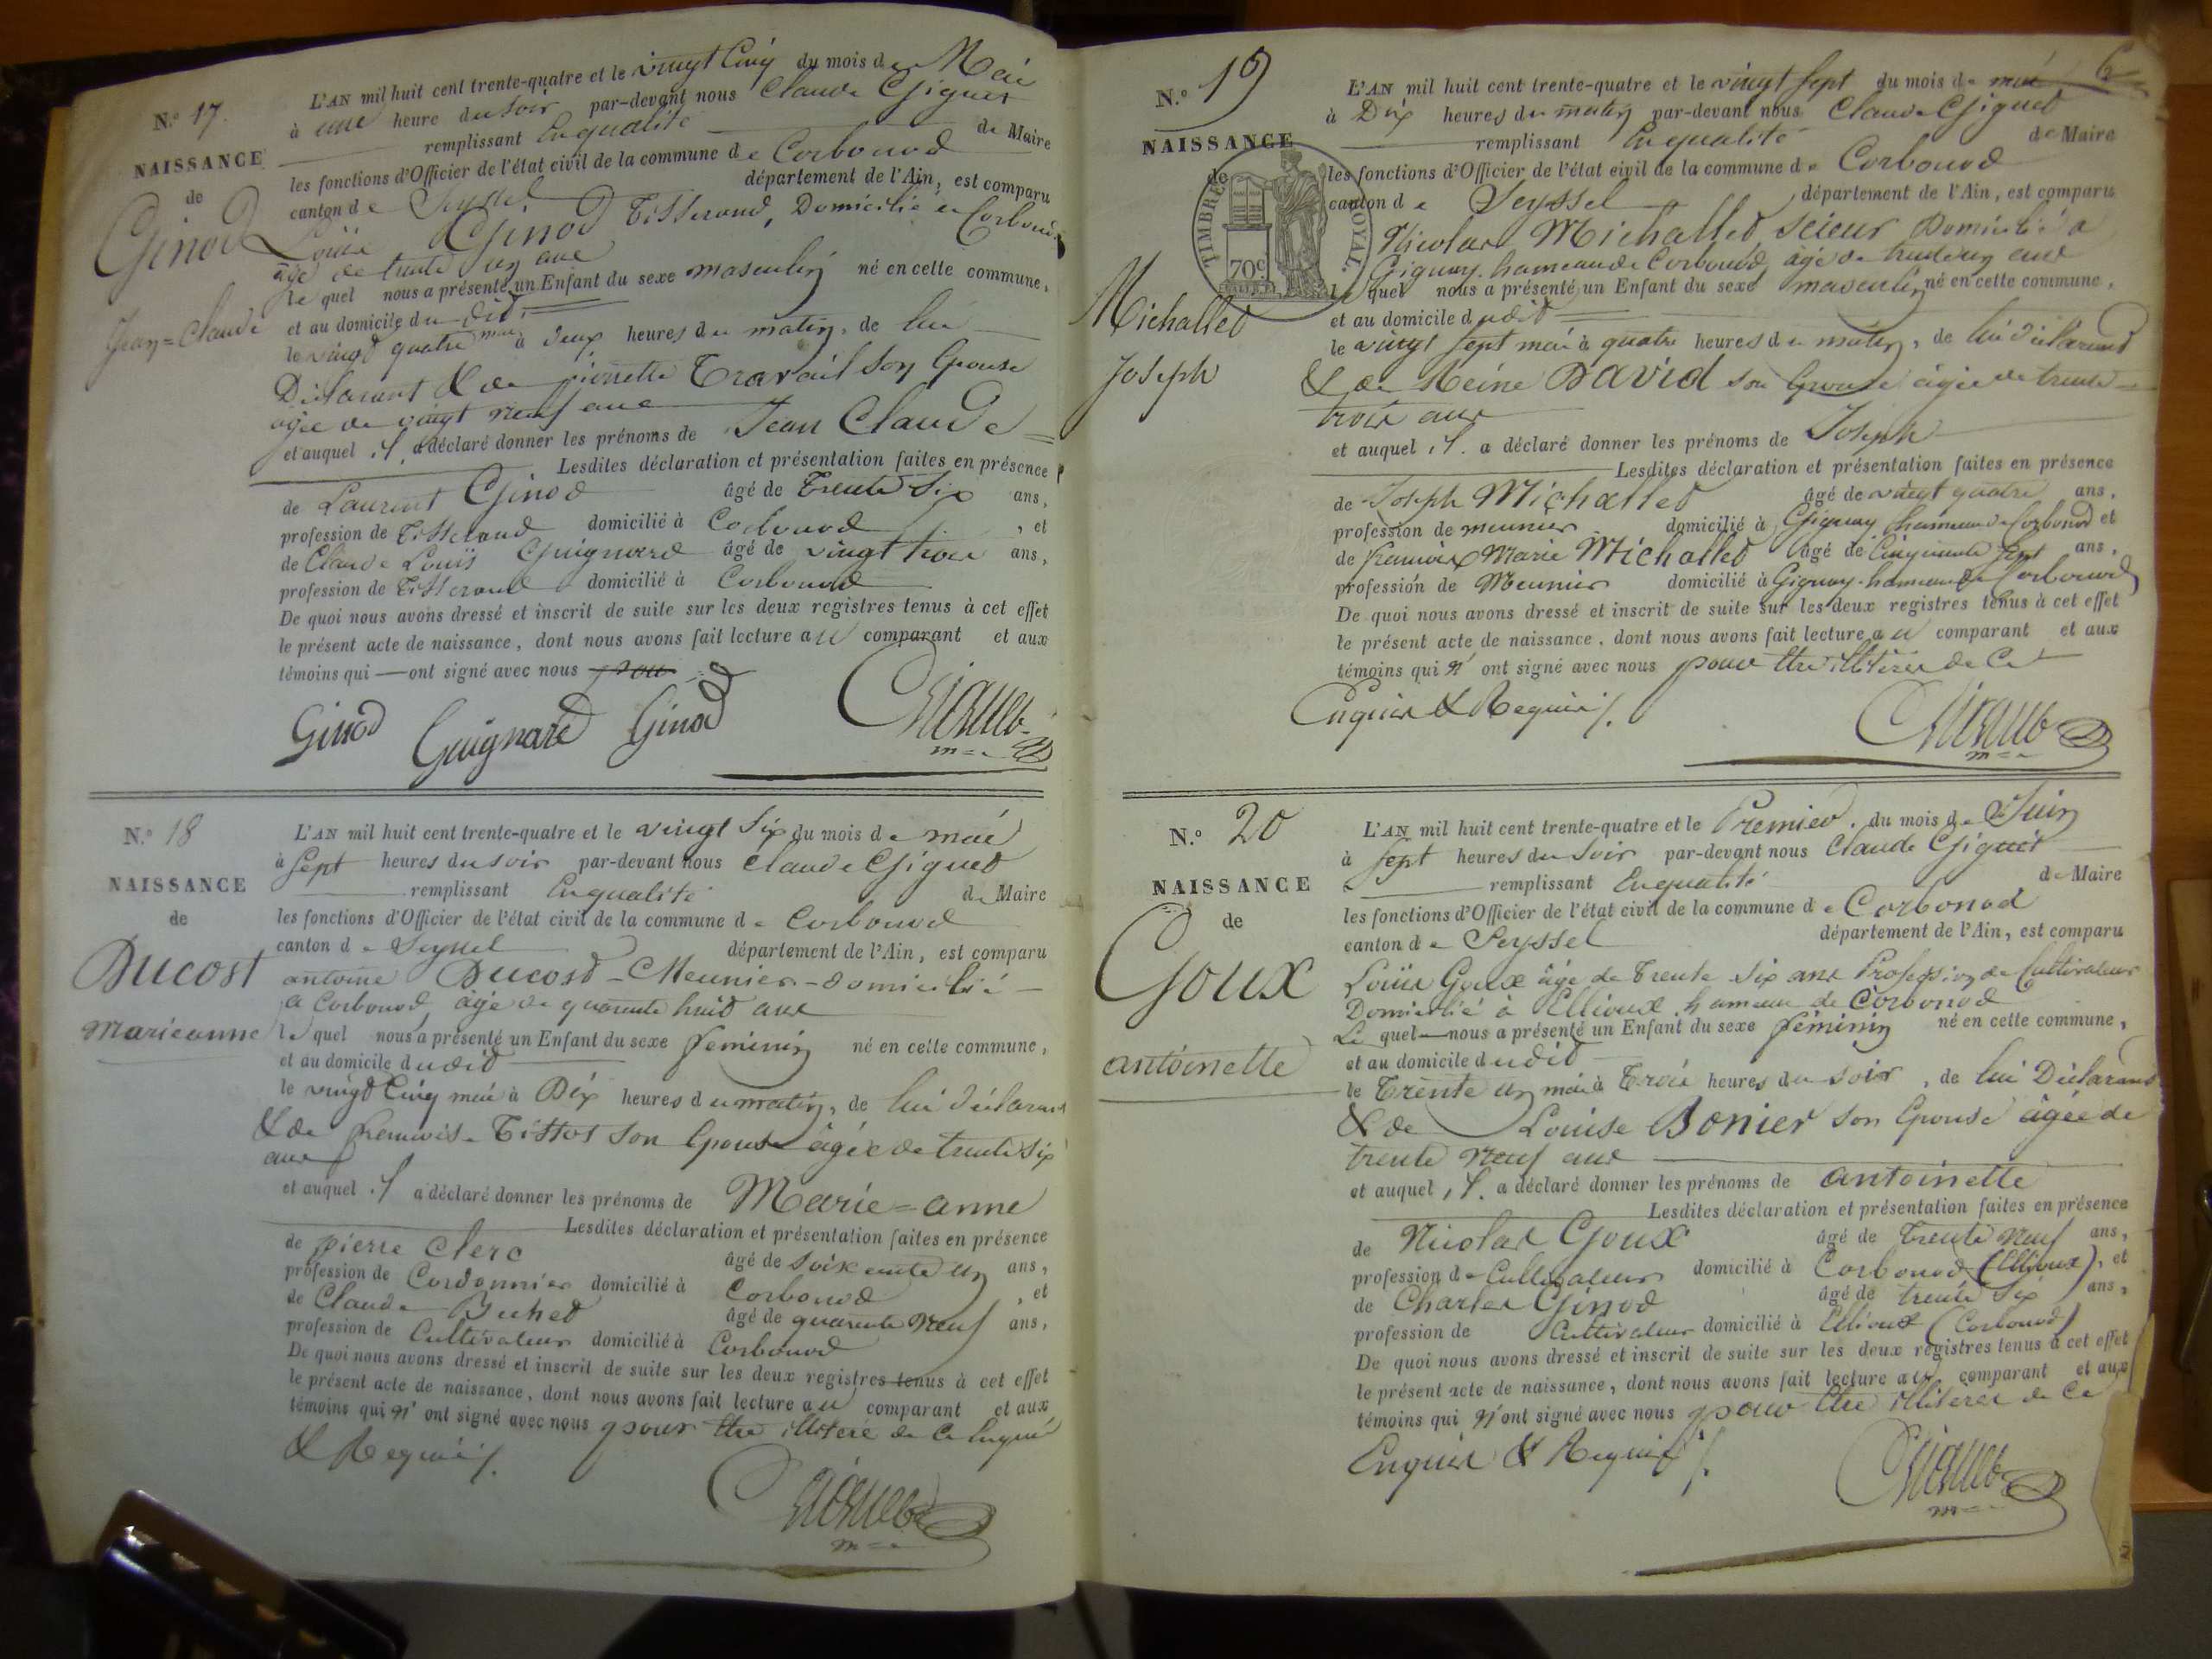 N.o 17.
NAISSANCE
de
Ginod
Jean=Claude
L'AN mil huit cent trente-quatre et le vingt Cinq du mois de Mai
à une heure du soir par-devant nous Claude Giguet
remplissant En qualité de Maire
les fonctions d'Officier de l'état civil de la commune de Corbonod
canton de Seyssel département de l'Ain, est comparu
Louis Ginod Tisserand, Domicilié à Corbonod
âgé de trente un ans
le quel nous a présenté un Enfant du sexe masculin né en cette commune,
et au domicile du dit
le vingt quatre mai à deux heures du matin, de lui
Déclarant & de pionette Travail son Epouse
agée de vingt neuf ans
et auquel il a déclaré donner les prénoms de Jean Claude
Lesdites déclaration et présentation faites en présence
de Laurent Ginod âgé de Trente Six ans,
profession de Tisserand domicilié à Corbonod , et
de Claude Louis Guignard âgé de vingt trois ans,
profession de Tisserand domicilié à Corbonod
De quoi nous avons dressé et inscrit de suite sur les deux registres tenus à cet effet
le présent acte de naissance, dont nous avons fait lecture au comparant et aux
témoins qui — ont signé avec nous pour
Ginod Guignard Ginod Giguet
m=e
N.o 18
NAISSANCE
de
Ducost
Marieanne
L'AN mil huit cent trente-quatre et le vingt Six du mois de mai
à Sept heures du soir par-devant nous Claude Giguet
remplissant En qualité de Maire
les fonctions d'Officier de l'état civil de la commune de Corbonod
canton de Seyssel département de l'Ain, est comparu
antoine Ducost - Meunier - domicilié
à Corbonod, âgé de quarante huit ans
le quel nous a présenté un Enfant du sexe féminin né en cette commune,
et au domicile dudit
le vingt Cinq mai à Dix heures du matin, de lui déclarant
& de francoise Tissot son Epouse âgée de trente six
ans
et auquel il a déclaré donner les prénoms de Marie=anne
Lesdites déclaration et présentation faites en présence
de pierre Clerc âgé de soixante un ans,
profession de Cordonnier domicilié à Corbonod , et
de Claude Buhet âgé de quarante neuf ans,
profession de Cultivateur domicilié à Corbonod
De quoi nous avons dressé et inscrit de suite sur les deux registres tenus à cet effet
le présent acte de naissance, dont nous avons fait lecture au comparant et aux
témoins qui n' ont signé avec nous pour être illitéré de ce Enquis
& Requis.
Giguet
m=e
6
N.o 19
NAISSANCE
de
TIMBRE ROYAL.
70c
Michallet
Joseph
L'AN mil huit cent trente-quatre et le vingt sept du mois de mai
à Dix heures du matin par-devant nous Claude Giguet
remplissant En qualité de Maire
les fonctions d'Officier de l'état civil de la commune de Corbonod
canton de Seyssel , département de l'Ain, est comparu
Nicolas Michallet scieur Domicilié à
Gignay hameau de Corbonod, âgé de trente un ans
le quel nous a présenté un Enfant du sexe masculin né en cette commune,
et au domicile dudit
le vingt sept mai à quatre heures du matin, de lui déclarant
& de Reine David son Epouse âgée de trente=
trois ans
et auquel il a déclaré donner les prénoms de Joseph
Lesdites déclaration et présentation faites en présence
de Joseph Michallet âgé de vingt quatre ans,
profession de meunier domicilié à Gignay hameau de Corbonod et
de francois Marie Michallet âgé de Cinquante sept ans,
profession de Meunier domicilié à Gignay hameau de Corbonod
De quoi nous avons dressé et inscrit de suite sur les deux registres tenus à cet effet
le présent acte de naissance, dont nous avons fait lecture au comparant et aux
témoins qui n' ont signé avec nous pour être illitérés de Ce
Enquis & Requis.
Giguet
m=e
N.o 20
NAISSANCE
de
Goux
antoinette
L'AN mil huit cent trente-quatre et le Premier. du mois de Juin
à Sept heures du soir par-devant nous Claude Giguet
remplissant En qualité de Maire
les fonctions d'Officier de l'état civil de la commune de Corbonod
canton de Seyssel département de l'Ain, est comparu
Louis Goux âgé de Trente Six ans Profession de Cultivateur
Domicilié à Ellioux hameau de Corbonod
Le quel nous a présenté un Enfant du sexe féminin né en cette commune,
et au domicile dudit
le Trente un mai à Trois heures du soir, de lui Déclarant
& de Louise Bonier son Epouse âgée de
trente neuf ans
et auquel il a déclaré donner les prénoms de antoinette
Lesdites déclaration et présentation faites en présence
de Nicolas Goux âgé de Trente Neuf ans,
profession de Cultivateur domicilié à Corbonod (Ellioux), et
de Charles Ginod âgé de trente six ans,
profession de Cultivateur domicilié à Ellioux (Corbonod)
De quoi nous avons dressé et inscrit de suite sur les deux registres tenus à cet effet
le présent acte de naissance, dont nous avons fait lecture au comparant et aux
témoins qui n'ont signé avec nous pour être illitérés de Ce
Enquis & Requis.
Giguet
m=e